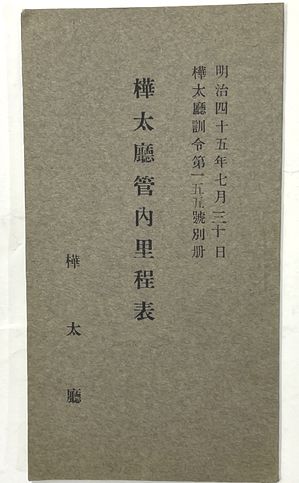 明治四十五年七月三十日
樺太廳訓令第一五五號別册
樺太廳管內里程表
樺太廳